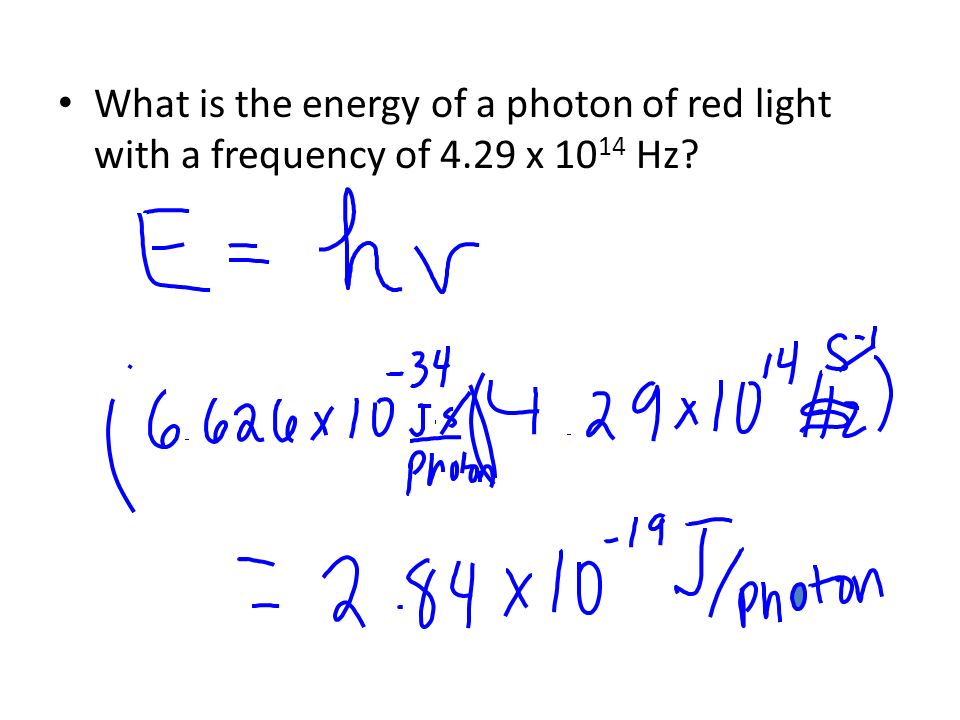 • What is the energy of a photon of red light
with a frequency of 4.29 x 10¹⁴ Hz?
E = hν
(6.626 x 10⁻³⁴ J·s/photon)(4.29 x 10¹⁴ Hz s⁻¹)
= 2.84 x 10⁻¹⁹ J/photon